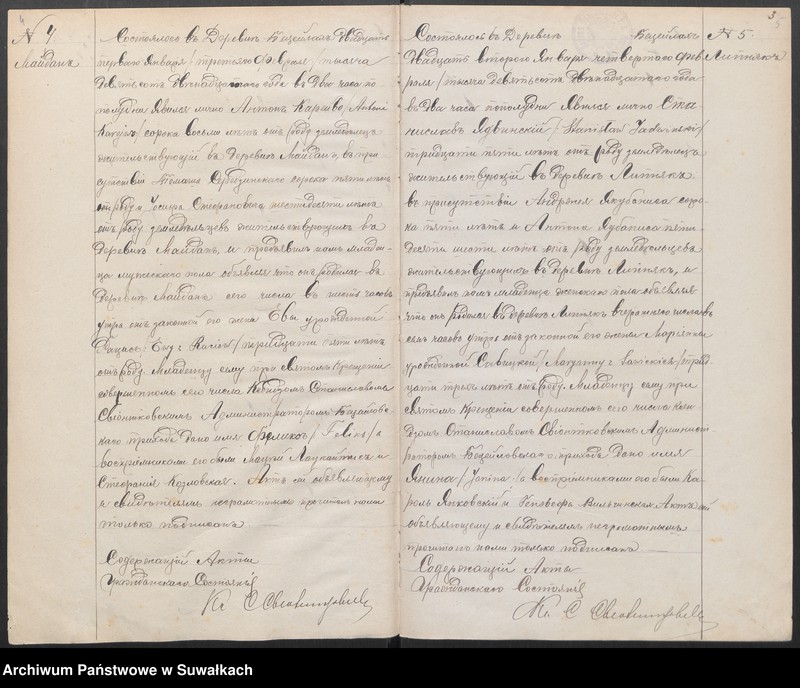 4
N 4.
Майданъ
Состоялось въ Деревнѣ Бацейлахъ Двадцать
перваго Января / третьяго Февраля / тысяча
девятьсотъ двѣнадцатаго года въ два часа по
полудни Явился лично Антонъ /Antoni
/ сорока восьми лѣтъ отъ роду земледѣлецъ
жительствующій въ Деревнѣ Майдан, въ при
сутствіи Томаша сорока пяти лѣтъ
отъ роду и Іосифа шестидесяти лѣтъ
отъ роду земледѣльцевъ жительствующихъ въ
деревнѣ Майдан, и предъявилъ намъ младен
ца мужескаго пола объявляя что онъ родился въ
Деревнѣ Майданъ сего числа въ шесть часовъ
утра отъ законной его жены Евы урожденной
Рацисъ / Ewy z Raciów / тридцати пяти лѣтъ
отъ роду. Младенцу сему при святомъ Крещеніи
совершенномъ сего числа Ксендзомъ Станиславомъ
Свіонтковскимъ Администраторомъ Бацейлов
скаго прихода дано имя Феликсъ / Felix / а
воспріемниками его были Мацей и
Стефанія Козловская. Актъ сей объявляющему
и свидѣтелямъ неграмотнымъ прочитанъ нами
только подписанъ
Содержащій Акты
Гражданскаго Состоянія
Кс С
3
5
N 5.
Липнякъ
Состоялось въ Деревнѣ Бацейлахъ
Двадцать втораго Января четвертаго Фев
раля / тысяча девятьсотъ двѣнадцатаго года
въ два часа пополудни Явился лично Ста
ниславъ Ядвинскій / Stanisław /
тридцати пяти лѣтъ отъ роду земледѣлецъ
жительствующій въ Деревнѣ Липнякъ
въ присутствіи Андрея Якубаниса соро
ка пяти лѣтъ и Антона Якубаниса пяти
десяти шести лѣтъ отъ роду земледѣльцевъ
жительствующихъ въ деревнѣ Липнякъ, и
предъявилъ намъ младенца женскаго пола объявляя
что онъ родился въ деревнѣ Липнякъ вчерашняго числа въ
часовъ утра отъ законной его жены Маріанны
урожденной Савицкой / Maryanny z Sawickich / трид
цати трехъ лѣтъ отъ роду. Младенцу сему при
святомъ Крещеніи совершенномъ сего числа Ксен
дзомъ Станиславомъ Свіонтковскимъ Админист
раторомъ Бацейловскаго прихода дано имя
Янина / Janina / а воспріемниками его были Ка
роль Янковскій и Актъ сей
объявляющему и свидѣтелямъ неграмотнымъ
прочитанъ нами только подписанъ
Содержащій Акты
Гражданскаго Состоянія
Кс С
Archiwum Państwowe w Suwałkach